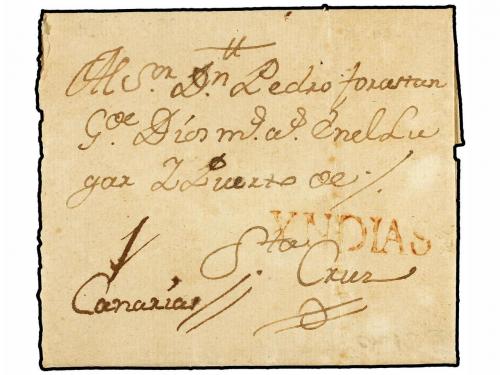 Al Sor. Dn. Pedro forastan
Goe. Dios ms. as. Enel Lu
gar Y Puerto de
YNDIAS
Sta
Cruz
Canarias